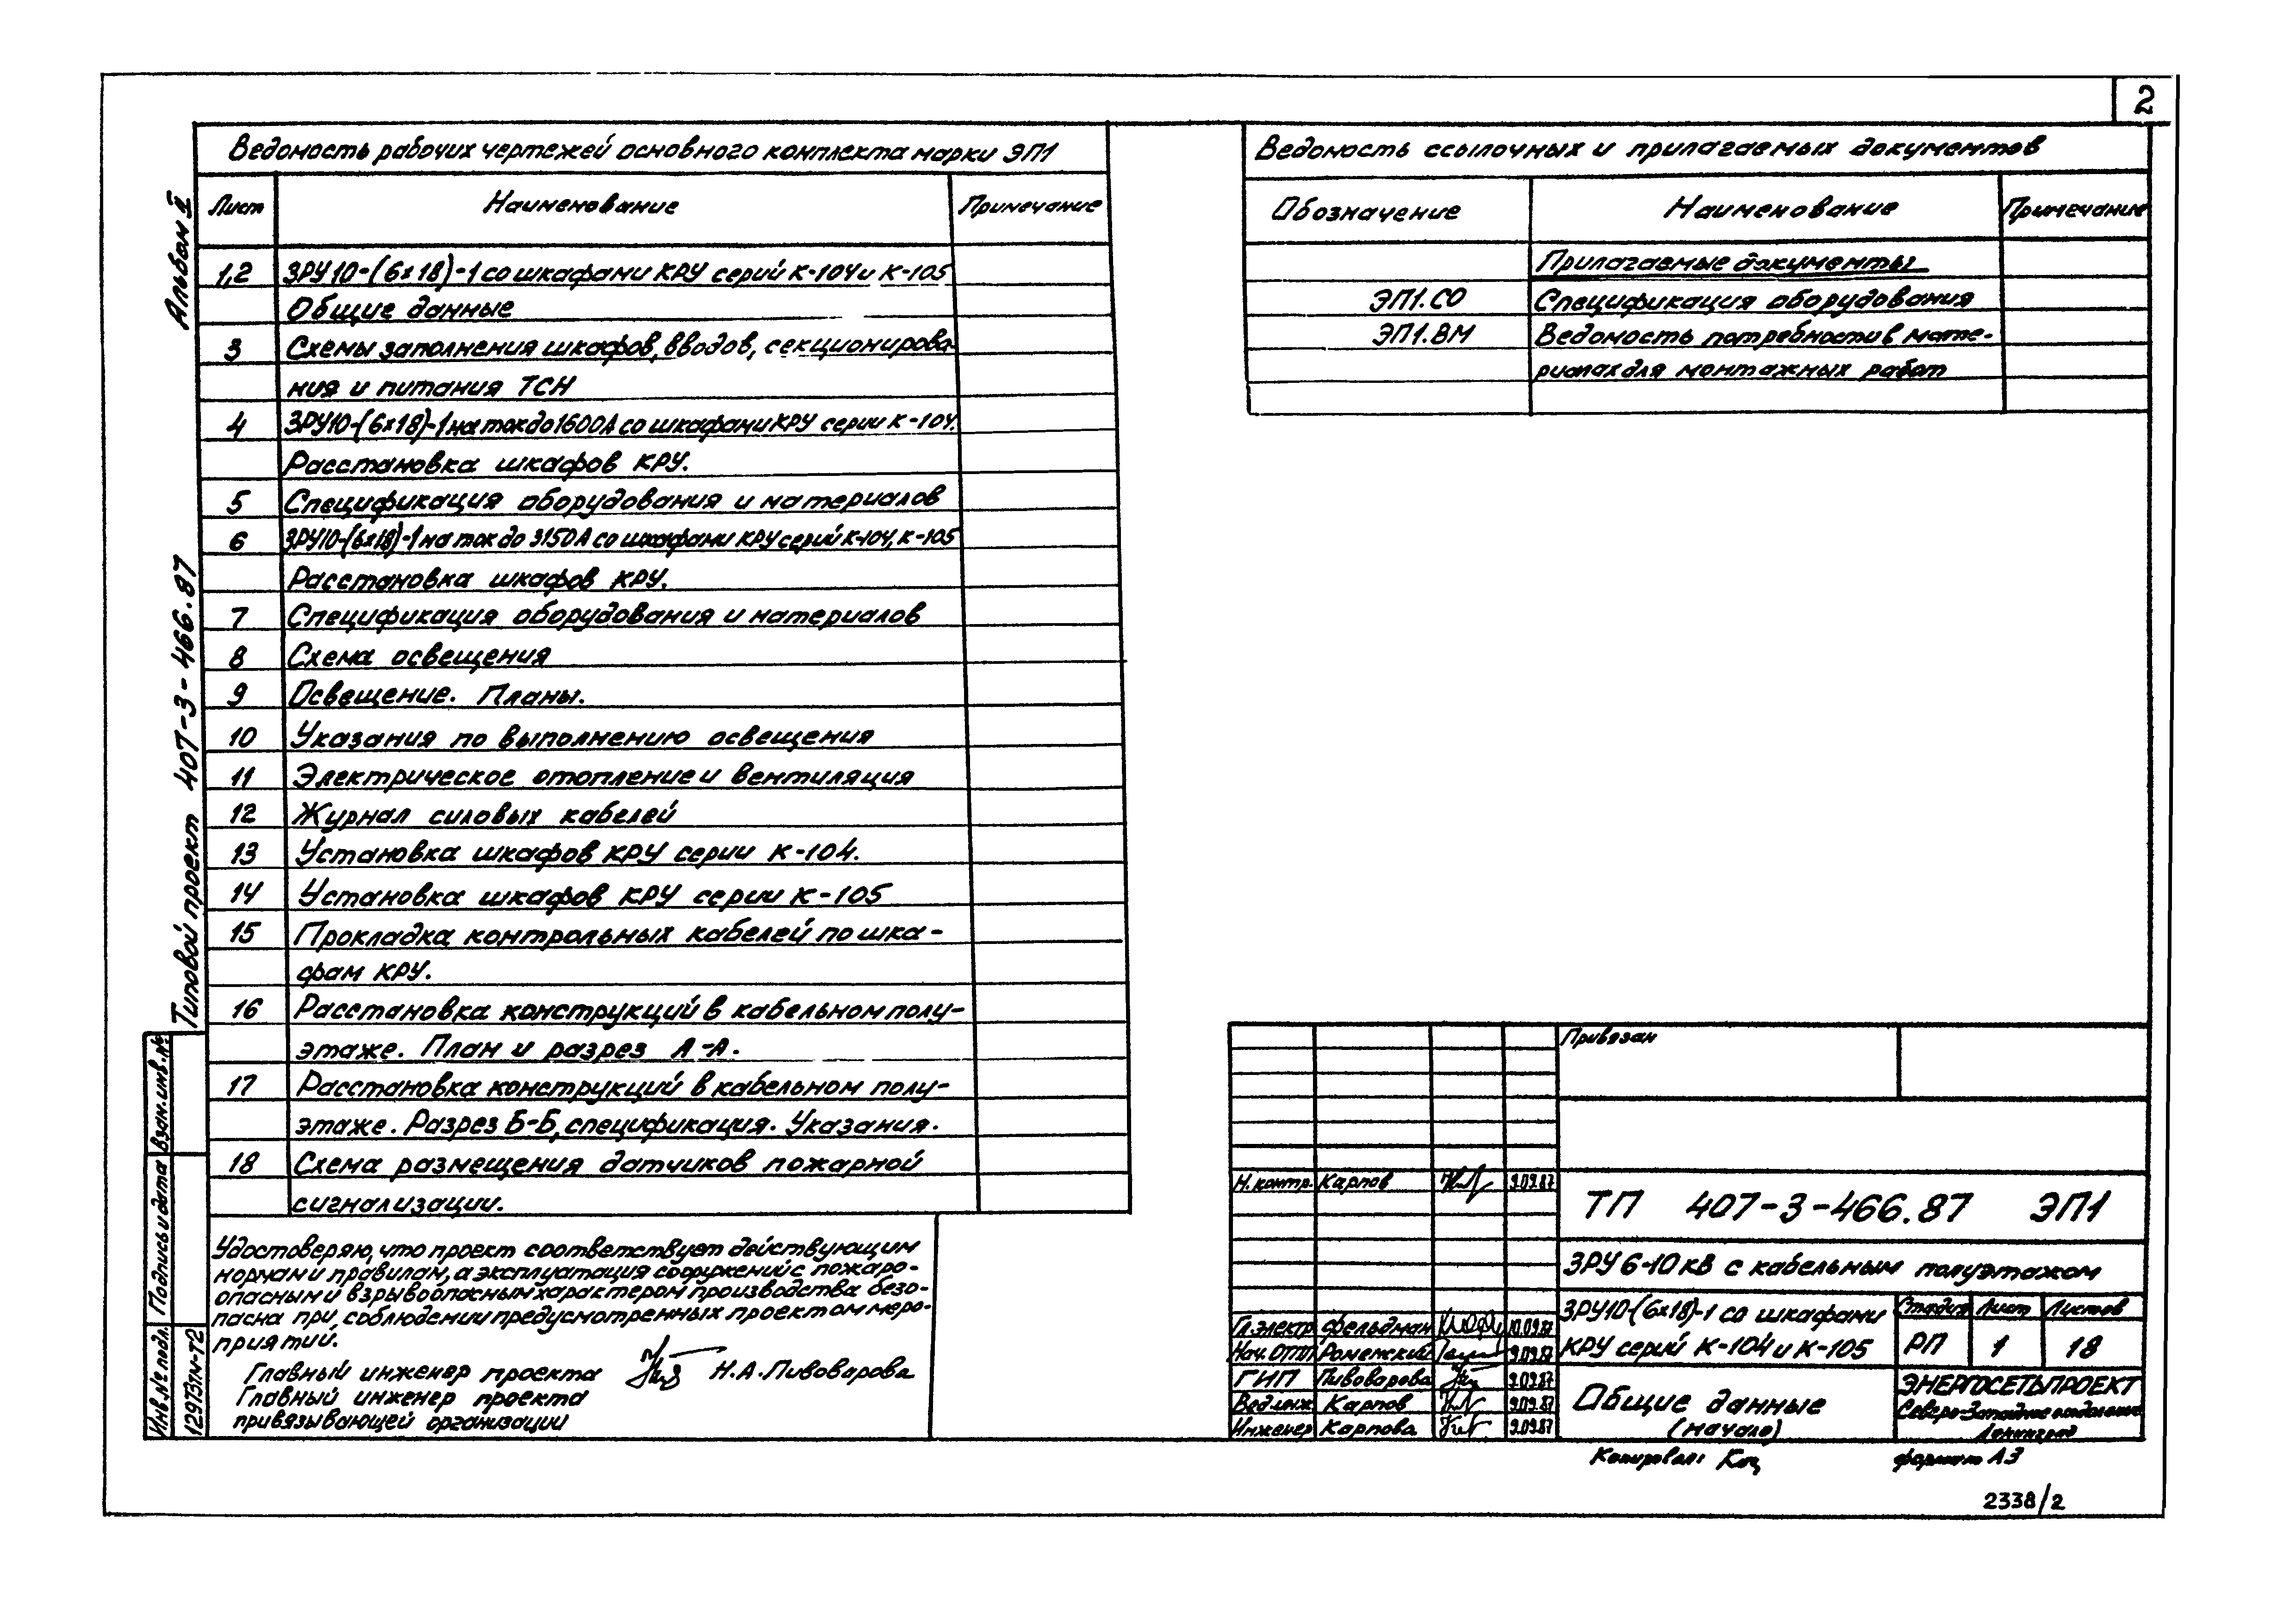 2
Альбом II
Типовой проект 407-3-466.87
Взам.инв.№
Подпись и дата
Инв.№ подл.
12973тм-Т2
Ведомость рабочих чертежей основного комплекта марки ЭП1
Лист Наименование Примечание
1,2 ЗРУ10-(6×18)-1 со шкафами КРУ серий К-104 и К-105
Общие данные
3 Схемы заполнения шкафов, вводов, секционирова-
ния и питания ТСН
4 ЗРУ10-(6×18)-1 на ток до 1600А со шкафами КРУ серии К-104.
Расстановка шкафов КРУ.
5 Спецификация оборудования и материалов
6 ЗРУ10-(6×18)-1 на ток до 3150А со шкафами КРУ серий К-104, К-105
Расстановка шкафов КРУ.
7 Спецификация оборудования и материалов
8 Схема освещения
9 Освещение. Планы.
10 Указания по выполнению освещения
11 Электрическое отопление и вентиляция
12 Журнал силовых кабелей
13 Установка шкафов КРУ серии К-104.
14 Установка шкафов КРУ серии К-105
15 Прокладка контрольных кабелей по шка-
фам КРУ.
16 Расстановка конструкций в кабельном полу-
этаже. План и разрез А-А.
17 Расстановка конструкций в кабельном полу-
этаже. Разрез Б-Б, спецификация. Указания.
18 Схема размещения датчиков пожарной
сигнализации.
Удостоверяю, что проект соответствует действующим
нормам и правилам, а эксплуатация сооружений с пожаро-
опасным и взрывоопасным характером производства безо-
пасна при соблюдении предусмотренных проектом меро-
приятий.
Главный инженер проекта Н.А.Пивоварова
Главный инженер проекта
привязывающей организации
Ведомость ссылочных и прилагаемых документов
Обозначение Наименование Примечание
Прилагаемые документы
ЭП1.СО Спецификация оборудования
ЭП1.ВМ Ведомость потребности в мате-
риалах для монтажных работ
Привязан
Н.контр. Карпов 9.09.87
ТП 407-3-466.87 ЭП1
ЗРУ 6-10 кВ с кабельным полуэтажом
Гл.электр. Фельдман 10.09.87
Нач.ОТП Роменский 9.09.87
ГИП Пивоварова 9.09.87
Вед.инж. Карпов 9.09.87
Инженер Карпова 9.09.87
ЗРУ10-(6×18)-1 со шкафами
КРУ серий К-104 и К-105
Стадия Лист Листов
РП 1 18
Общие данные
(начало)
ЭНЕРГОСЕТЬПРОЕКТ
Северо-Западное отделение
Ленинград
Копировал:
формат А3
2338/2